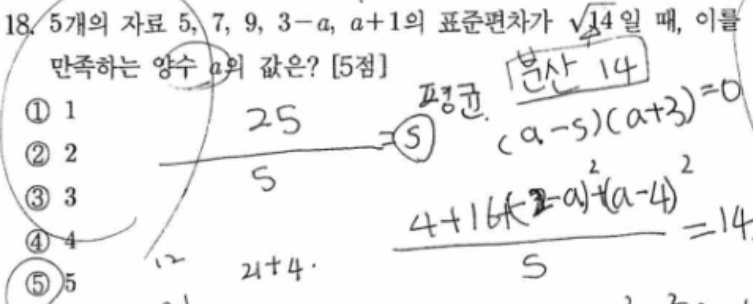 18. 5개의 자료 5, 7, 9, 3-a, a+1의 표준편차가 √14일 때, 이를
만족하는 양수 a의 값은? [5점]
① 1
② 2
③ 3
④ 4
⑤ 5
25
5
=5
평균.
분산 14
(a-5)(a+3)=0
4+16+(-2-a)²+(a-4)²
5
=14
12
21+4.